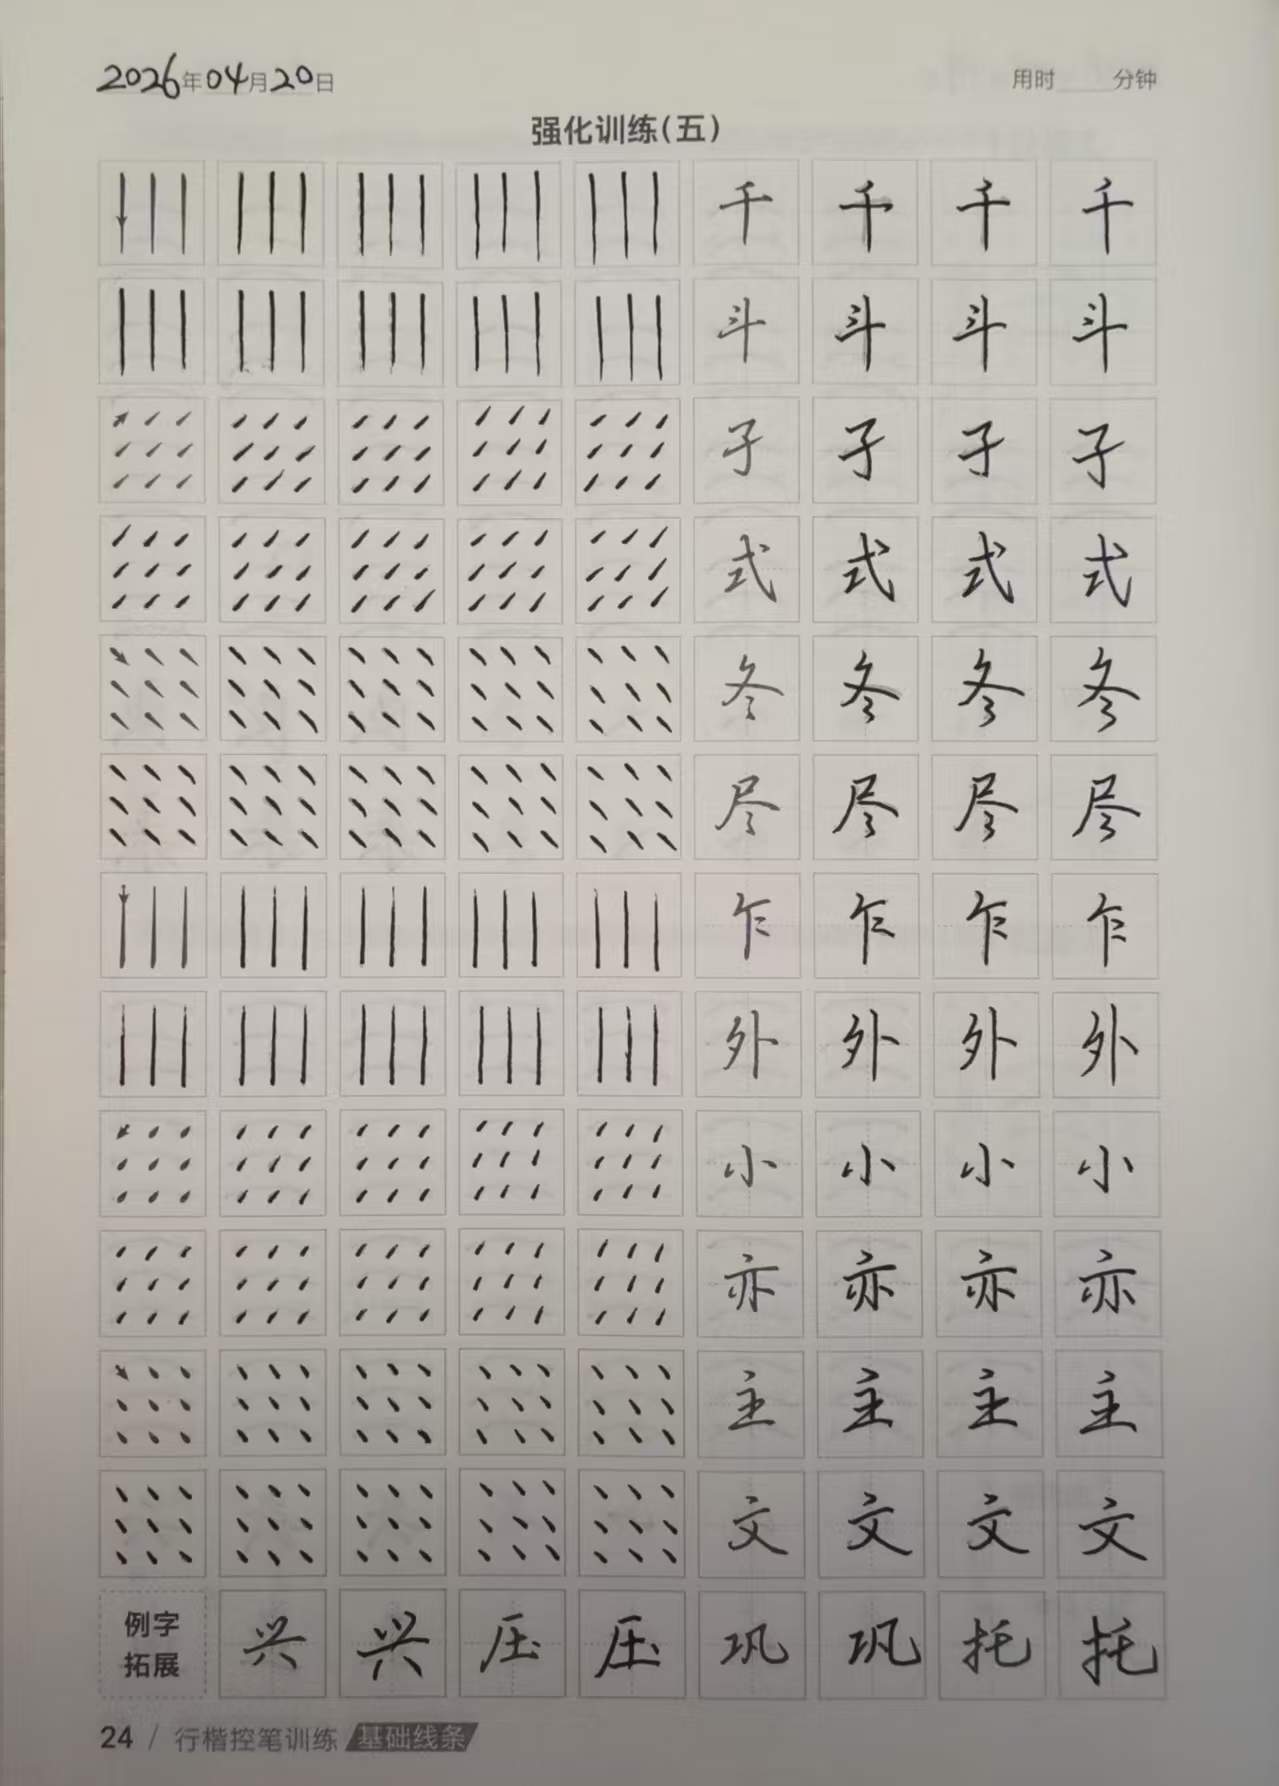 2026年04月20日 用时 分钟
强化训练(五)
千 千 千 千
斗 斗 斗 斗
孑 孑 孑 孑
式 式 式 式
冬 冬 冬 冬
尽 尽 尽 尽
乍 乍 乍 乍
外 外 外 外
小 小 小 小
亦 亦 亦 亦
主 主 主 主
文 文 文 文
例字拓展 兴 兴 压 压 巩 巩 托 托
24 / 行楷控笔训练 基础线条